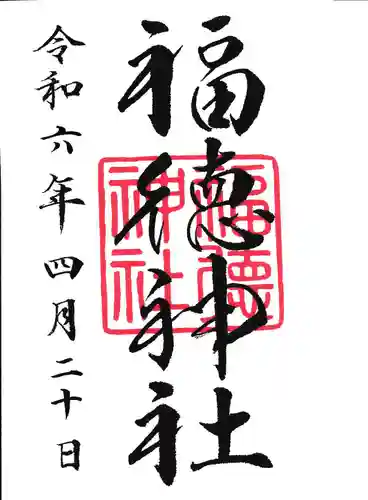 福德神社
令和六年四月二十日
福德
神社